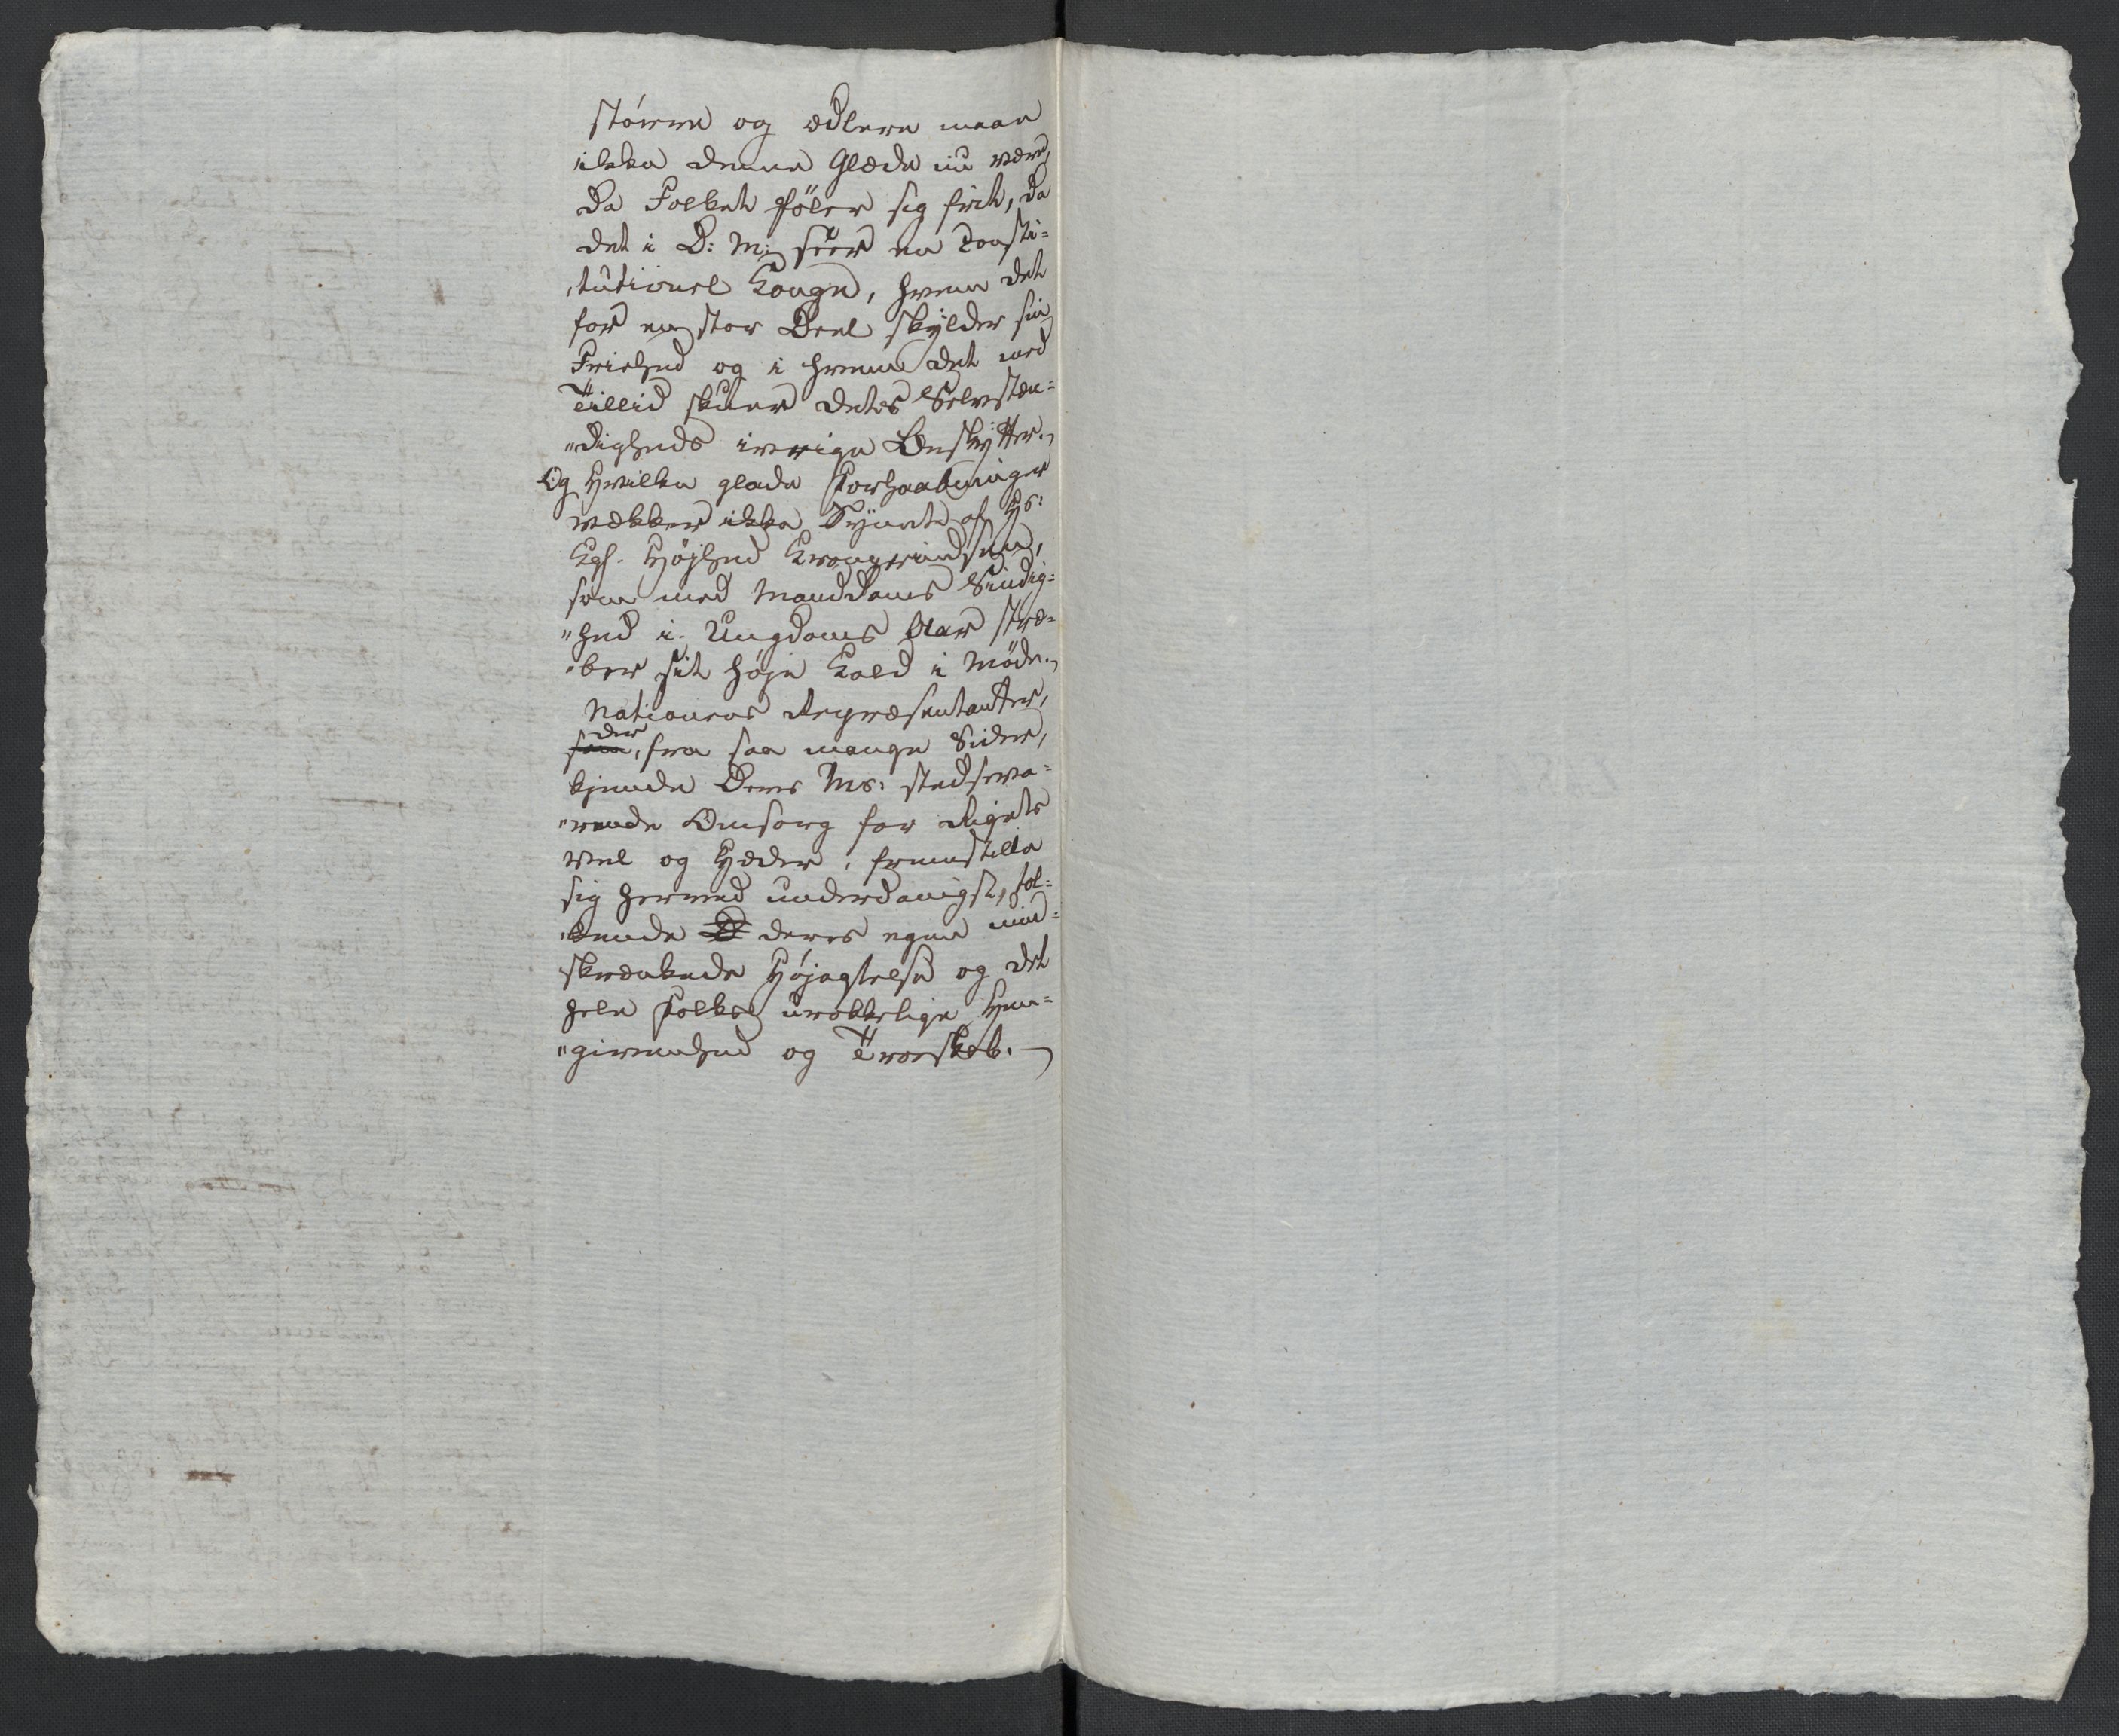 større og ædlere maae
ikke denne Glæde nu være,
da Folket føler sig frit, da
det i D: M: seer en Consti=
tutionel Konge, hvem det
for en stor Deel skylder sin
Friehed og i hvem det med
Tillid skuer dets Selvstæn=
„digheds ivrige Beskytter.
Og hvilke glade Forhaabninger
vækker ikke Synet af Hs:
Kgl. Højhed Kronprindsen,
som med Manddoms Sindig=
„hed i Ungdoms Aar stræ=
„ber sit høje Kald i Møde.
Nationens Repræsentanter,
der
som, fra saa mange Sider,
kjende Deres Ms: stedseva=
„rende Omsorg for Rigets
Vel og Hæder, fremstille
sig herved underdanigst, tol=
„kende D deres egen uind=
skrænkede Højagtelse og det
hele Folks urokkelige Hen=
„givenhed og Troeskab.